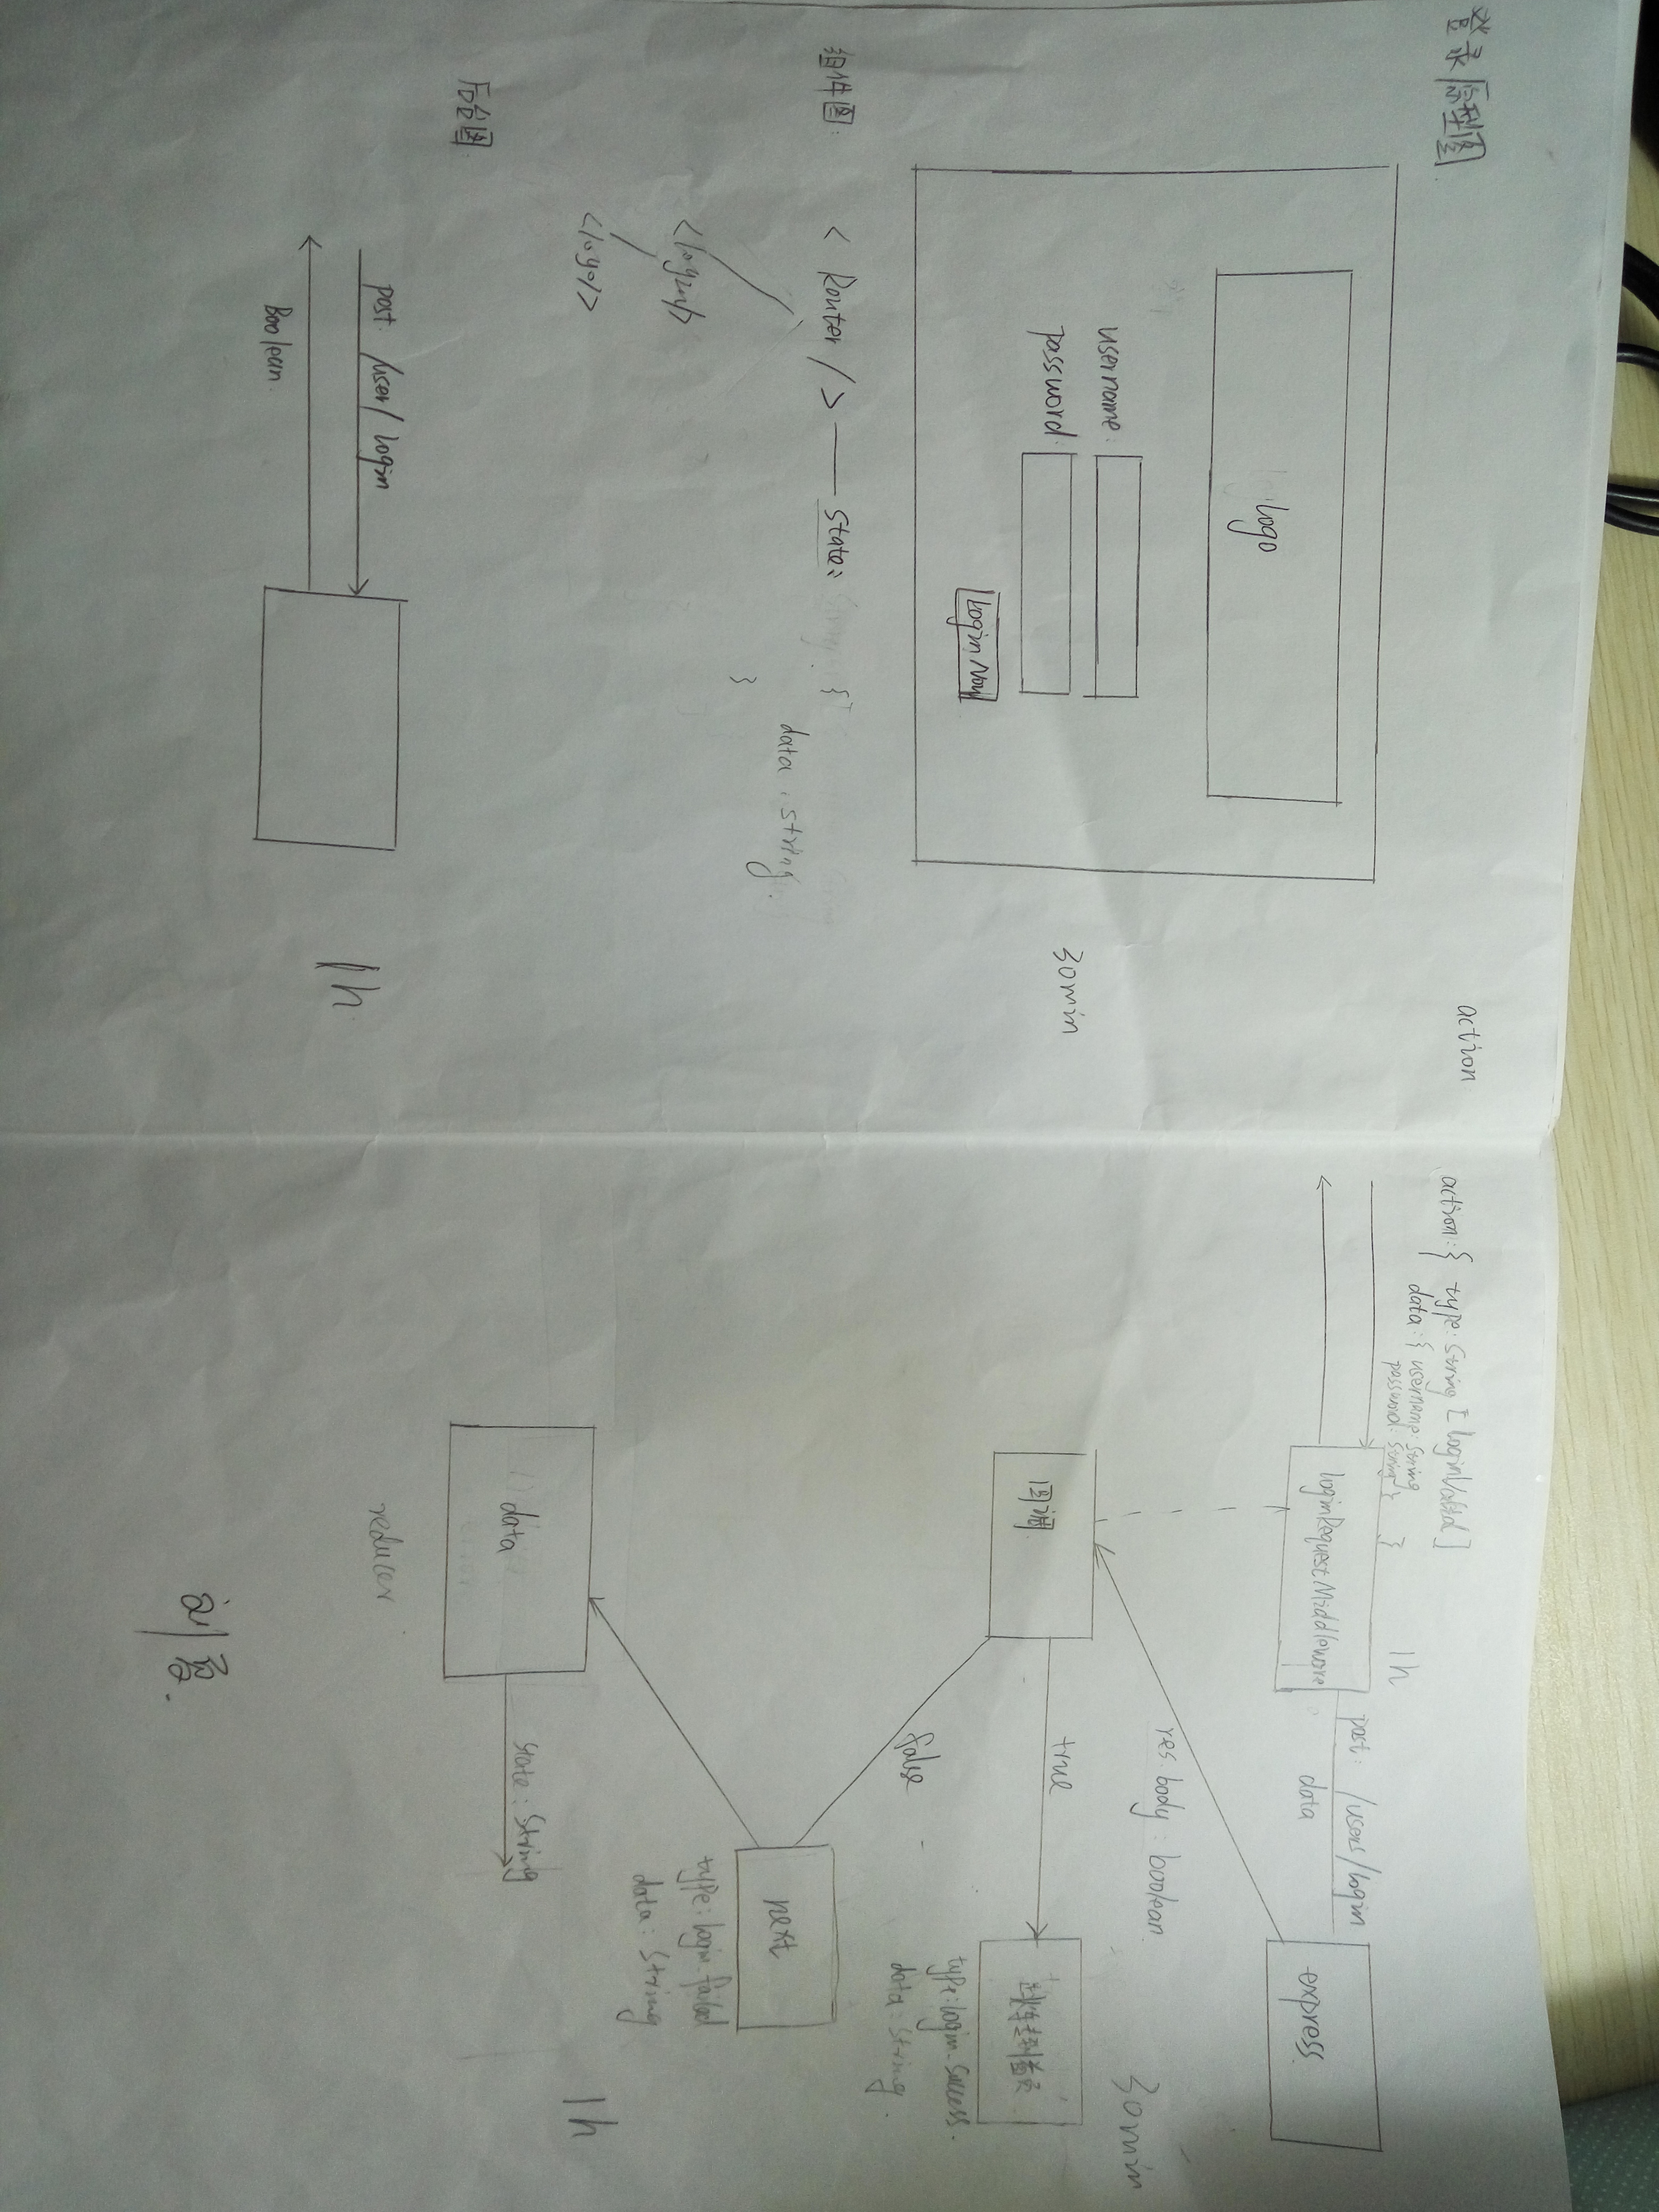 登录原型图
logo
username:
password:
Login Now
30min
组件图:
< Router / >
State:
{
data : string.
}
<login/>
<logo/>
后台图:
post /user/login
Boolean.
1h
action
action: { type: String [ loginValid ]
data: { username: String
password: String }
}
1h
loginRequestMiddleware
post: /users/login
data
express
res.body : boolean
30min
回调
true
type: login-success.
data : string.
false
next
type: login-failed
data : string
data
state : String
reducer
1h